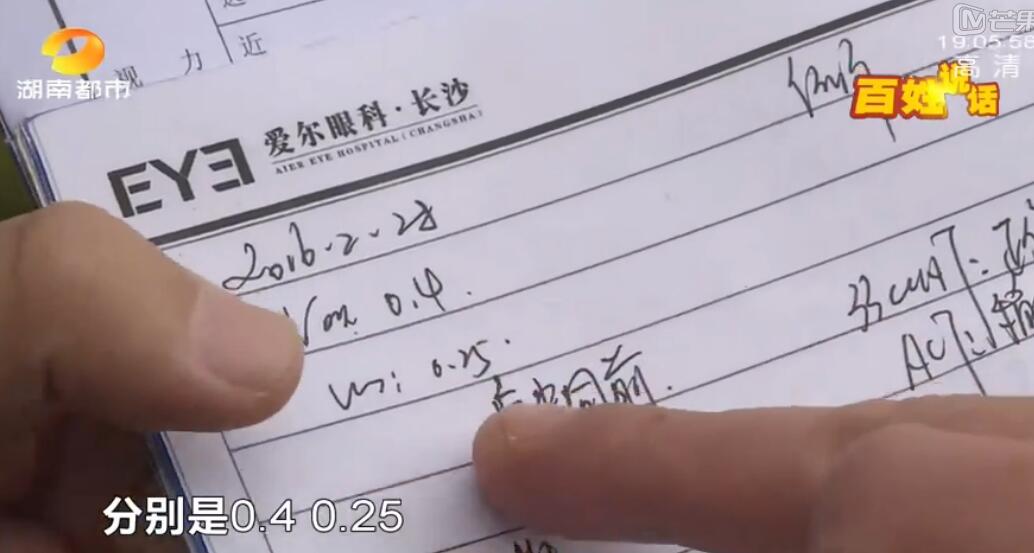 湖南都市
芒果
19:05:58
高清
百姓说话
视力
近
EYE 爱尔眼科·长沙
AIER EYE HOSPITAL (CHANGSHA)
2016.2.28
0.4
0.25
同前
分别是0.4 0.25